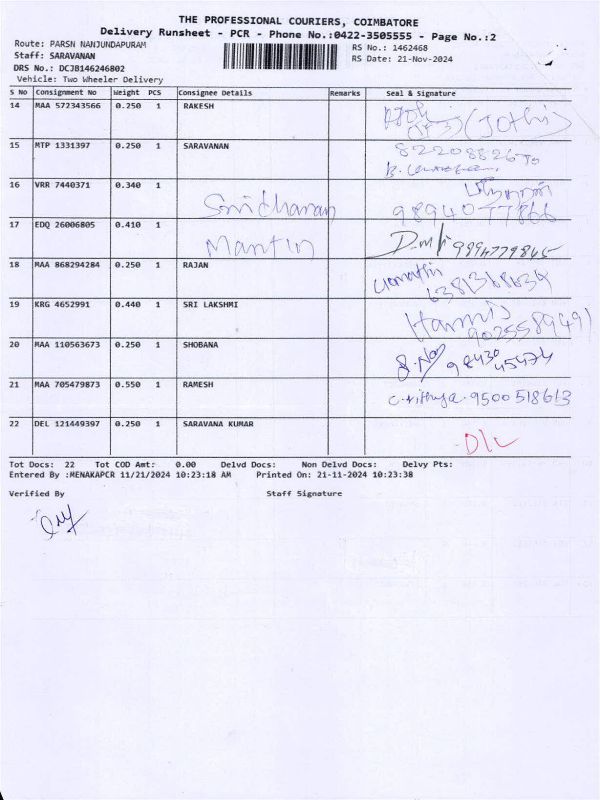 THE PROFESSIONAL COURIERS, COIMBATORE
Delivery Runsheet - PCR - Phone No.:0422-3505555 - Page No.:2
Route: PARSN NANJUNDAPURAM
RS No.: 1462468
Staff: SARAVANAN
RS Date: 21-Nov-2024
DRS No.: DCJB146246802
Vehicle: Two Wheeler Delivery
S No Consignment No Weight PCS Consignee Details Remarks Seal & Signature
14 MAA 572343566 0.250 1 RAKESH (Jothi)
15 MTP 1331397 0.250 1 SARAVANAN
16 VRR 7440371 0.340 1 9894077866
17 EDQ 26006805 0.410 1 Martin 9994779845
18 MAA 868294284 0.250 1 RAJAN
19 KRG 4652991 0.440 1 SRI LAKSHMI 9025589491
20 MAA 110563673 0.250 1 SHOBANA 98430 45474
21 MAA 705479873 0.550 1 RAMESH C. Nithya. 9500518613
22 DEL 121449397 0.250 1 SARAVANA KUMAR D/L
Tot Docs: 22 Tot COD Amt: 0.00 Delvd Docs: Non Delvd Docs: Delvy Pts:
Entered By :MENAKAPCR 11/21/2024 10:23:18 AM Printed On: 21-11-2024 10:23:38
Verified By Staff Signature